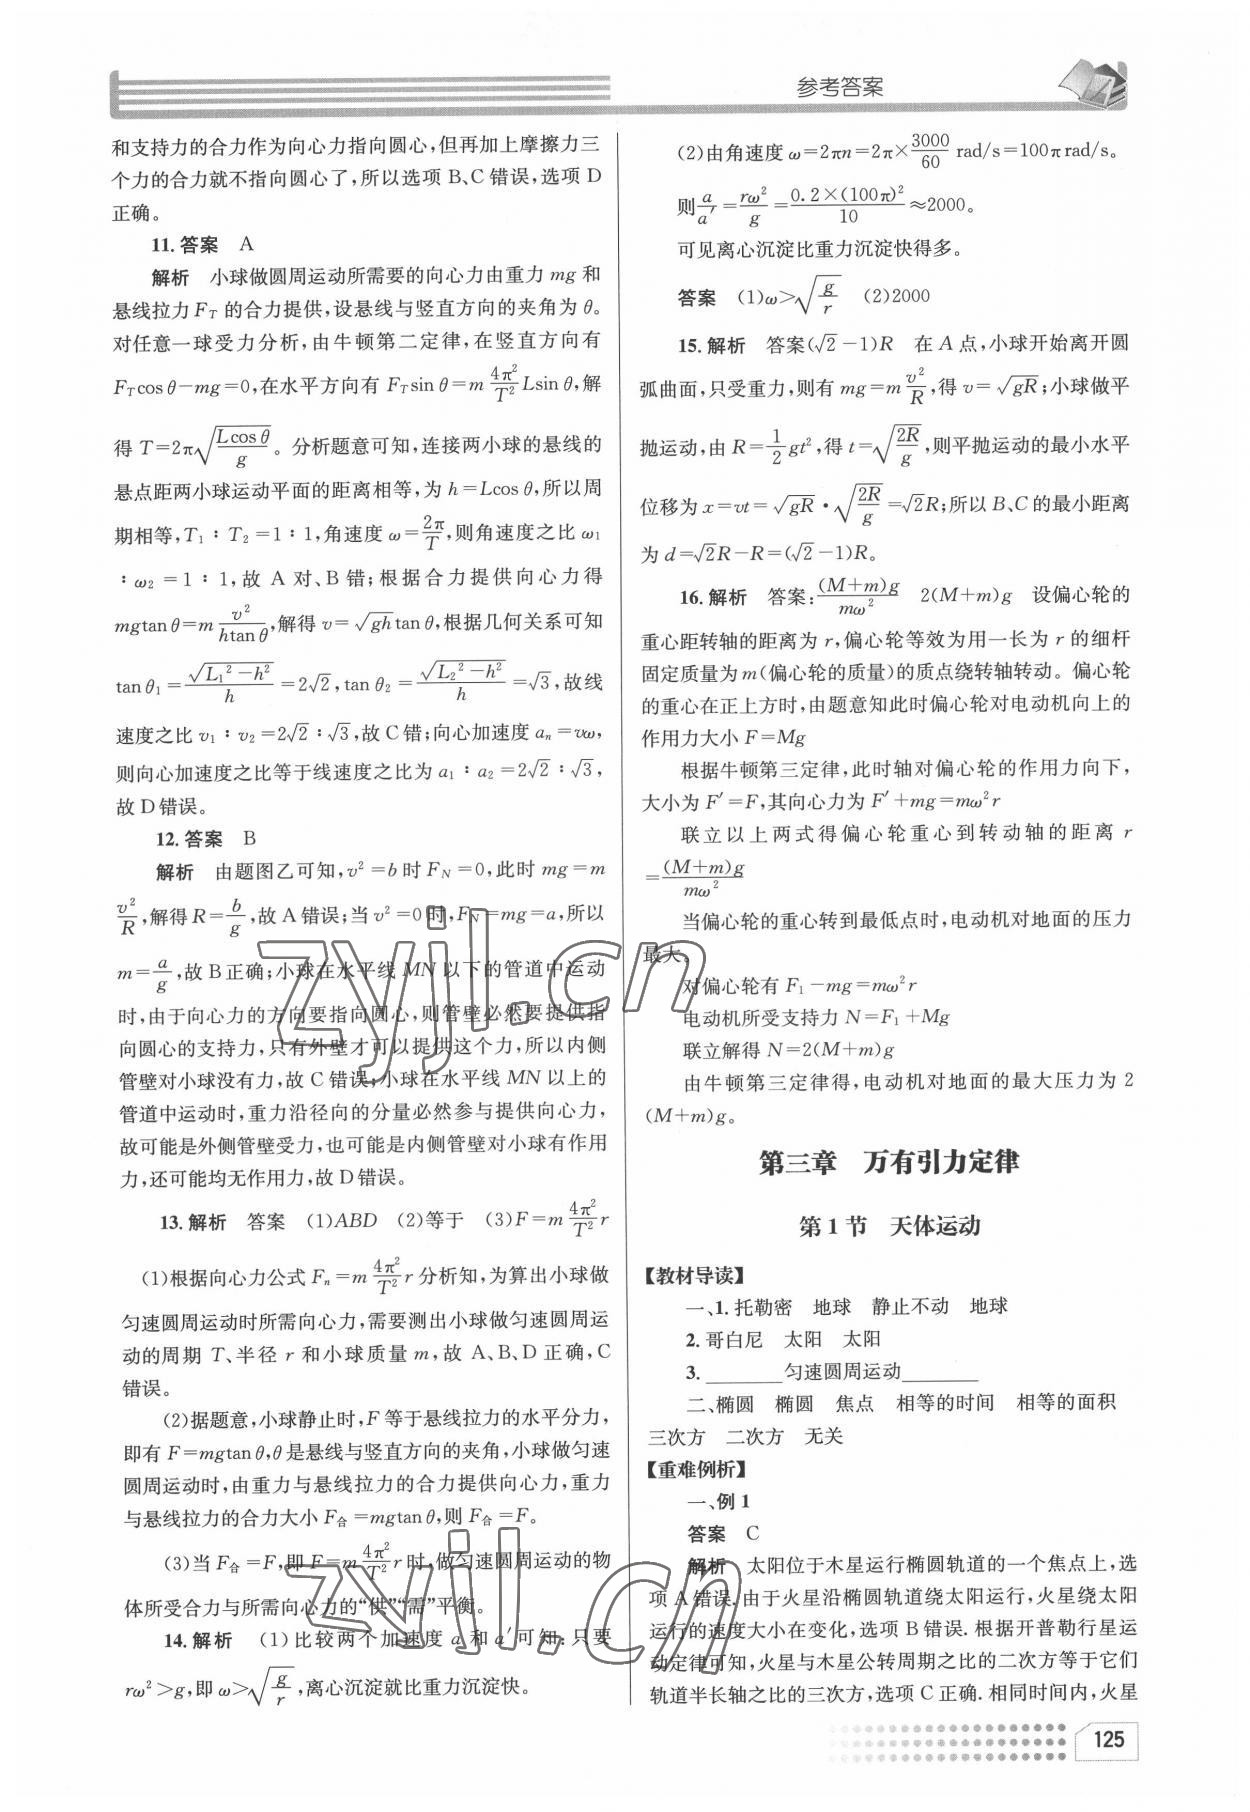 参考答案
和支持力的合力作为向心力指向圆心,但再加上摩擦力三
个力的合力就不指向圆心了,所以选项 B、C 错误,选项 D
正确。
11. 答案 A
解析 小球做圆周运动所需要的向心力由重力 mg 和
悬线拉力 F_T 的合力提供,设悬线与竖直方向的夹角为 θ。
对任意一球受力分析,由牛顿第二定律,在竖直方向有
F_T cos θ−mg=0,在水平方向有 F_T sin θ=m 4π²/T² Lsin θ,解
得 T=2π√(Lcos θ/g)。分析题意可知,连接两小球的悬线的
悬点距两小球运动平面的距离相等,为 h=Lcos θ,所以周
期相等,T₁∶T₂=1∶1,角速度 ω=2π/T,则角速度之比 ω₁
∶ω₂=1∶1,故 A 对、B 错;根据合力提供向心力得
mgtan θ=m v²/(htan θ),解得 v=√(gh) tan θ,根据几何关系可知
tan θ₁=√(L₁²−h²)/h=2√2,tan θ₂=√(L₂²−h²)/h=√3,故线
速度之比 v₁∶v₂=2√2∶√3,故 C 错;向心加速度 aₙ=vω,
则向心加速度之比等于线速度之比为 a₁∶a₂=2√2∶√3,
故 D 错误。
12. 答案 B
解析 由题图乙可知,v²=b 时 F_N=0,此时 mg=m
v²/R,解得 R=b/g,故 A 错误;当 v²=0 时,F_N=mg=a,所以
m=a/g,故 B 正确;小球在水平线 MN 以下的管道中运动
时,由于向心力的方向要指向圆心,则管壁必然要提供指
向圆心的支持力,只有外壁才可以提供这个力,所以内侧
管壁对小球没有力,故 C 错误;小球在水平线 MN 以上的
管道中运动时,重力沿径向的分量必然参与提供向心力,
故可能是外侧管壁受力,也可能是内侧管壁对小球有作用
力,还可能均无作用力,故 D 错误。
13. 解析 答案 (1)ABD (2)等于 (3)F=m 4π²/T² r
(1)根据向心力公式 Fₙ=m 4π²/T² r 分析知,为算出小球做
匀速圆周运动时所需向心力,需要测出小球做匀速圆周运
动的周期 T、半径 r 和小球质量 m,故 A、B、D 正确,C
错误。
(2)据题意,小球静止时,F 等于悬线拉力的水平分力,
即有 F=mgtan θ,θ 是悬线与竖直方向的夹角,小球做匀速
圆周运动时,由重力与悬线拉力的合力提供向心力,重力
与悬线拉力的合力大小 F合=mgtan θ,则 F合=F。
(3)当 F合=F,即 F=m 4π²/T² r 时,做匀速圆周运动的物
体所受合力与所需向心力的“供”“需”平衡。
14. 解析 (1)比较两个加速度 a 和 a′可知:只要
rω²>g,即 ω>√(g/r),离心沉淀就比重力沉淀快。
(2)由角速度 ω=2πn=2π×3000/60 rad/s=100π rad/s。
则 a/a′=rω²/g=0.2×(100π)²/10≈2000。
可见离心沉淀比重力沉淀快得多。
答案 (1)ω>√(g/r) (2)2000
15. 解析 答案(√2−1)R 在 A 点,小球开始离开圆
弧曲面,只受重力,则有 mg=m v²/R,得 v=√(gR);小球做平
抛运动,由 R=1/2 gt²,得 t=√(2R/g),则平抛运动的最小水平
位移为 x=vt=√(gR)·√(2R/g)=√2R;所以 B、C 的最小距离
为 d=√2R−R=(√2−1)R。
16. 解析 答案:(M+m)g/mω² 2(M+m)g 设偏心轮的
重心距转轴的距离为 r,偏心轮等效为用一长为 r 的细杆
固定质量为 m(偏心轮的质量)的质点绕转轴转动。偏心轮
的重心在正上方时,由题意知此时偏心轮对电动机向上的
作用力大小 F=Mg
根据牛顿第三定律,此时轴对偏心轮的作用力向下,
大小为 F′=F,其向心力为 F′+mg=mω²r
联立以上两式得偏心轮重心到转动轴的距离 r
=(M+m)g/mω²
当偏心轮的重心转到最低点时,电动机对地面的压力
最大。
对偏心轮有 F₁−mg=mω²r
电动机所受支持力 N=F₁+Mg
联立解得 N=2(M+m)g
由牛顿第三定律得,电动机对地面的最大压力为 2
(M+m)g。
第三章 万有引力定律
第 1 节 天体运动
【教材导读】
一、1. 托勒密 地球 静止不动 地球
2. 哥白尼 太阳 太阳
3. ________匀速圆周运动________
二、椭圆 椭圆 焦点 相等的时间 相等的面积
三次方 二次方 无关
【重难例析】
一、例 1
答案 C
解析 太阳位于木星运行椭圆轨道的一个焦点上,选
项 A 错误. 由于火星沿椭圆轨道绕太阳运行,火星绕太阳
运行的速度大小在变化,选项 B 错误. 根据开普勒行星运
动定律可知,火星与木星公转周期之比的二次方等于它们
轨道半长轴之比的三次方,选项 C 正确. 相同时间内,火星
125
zyjl.cn
zyjl.cn